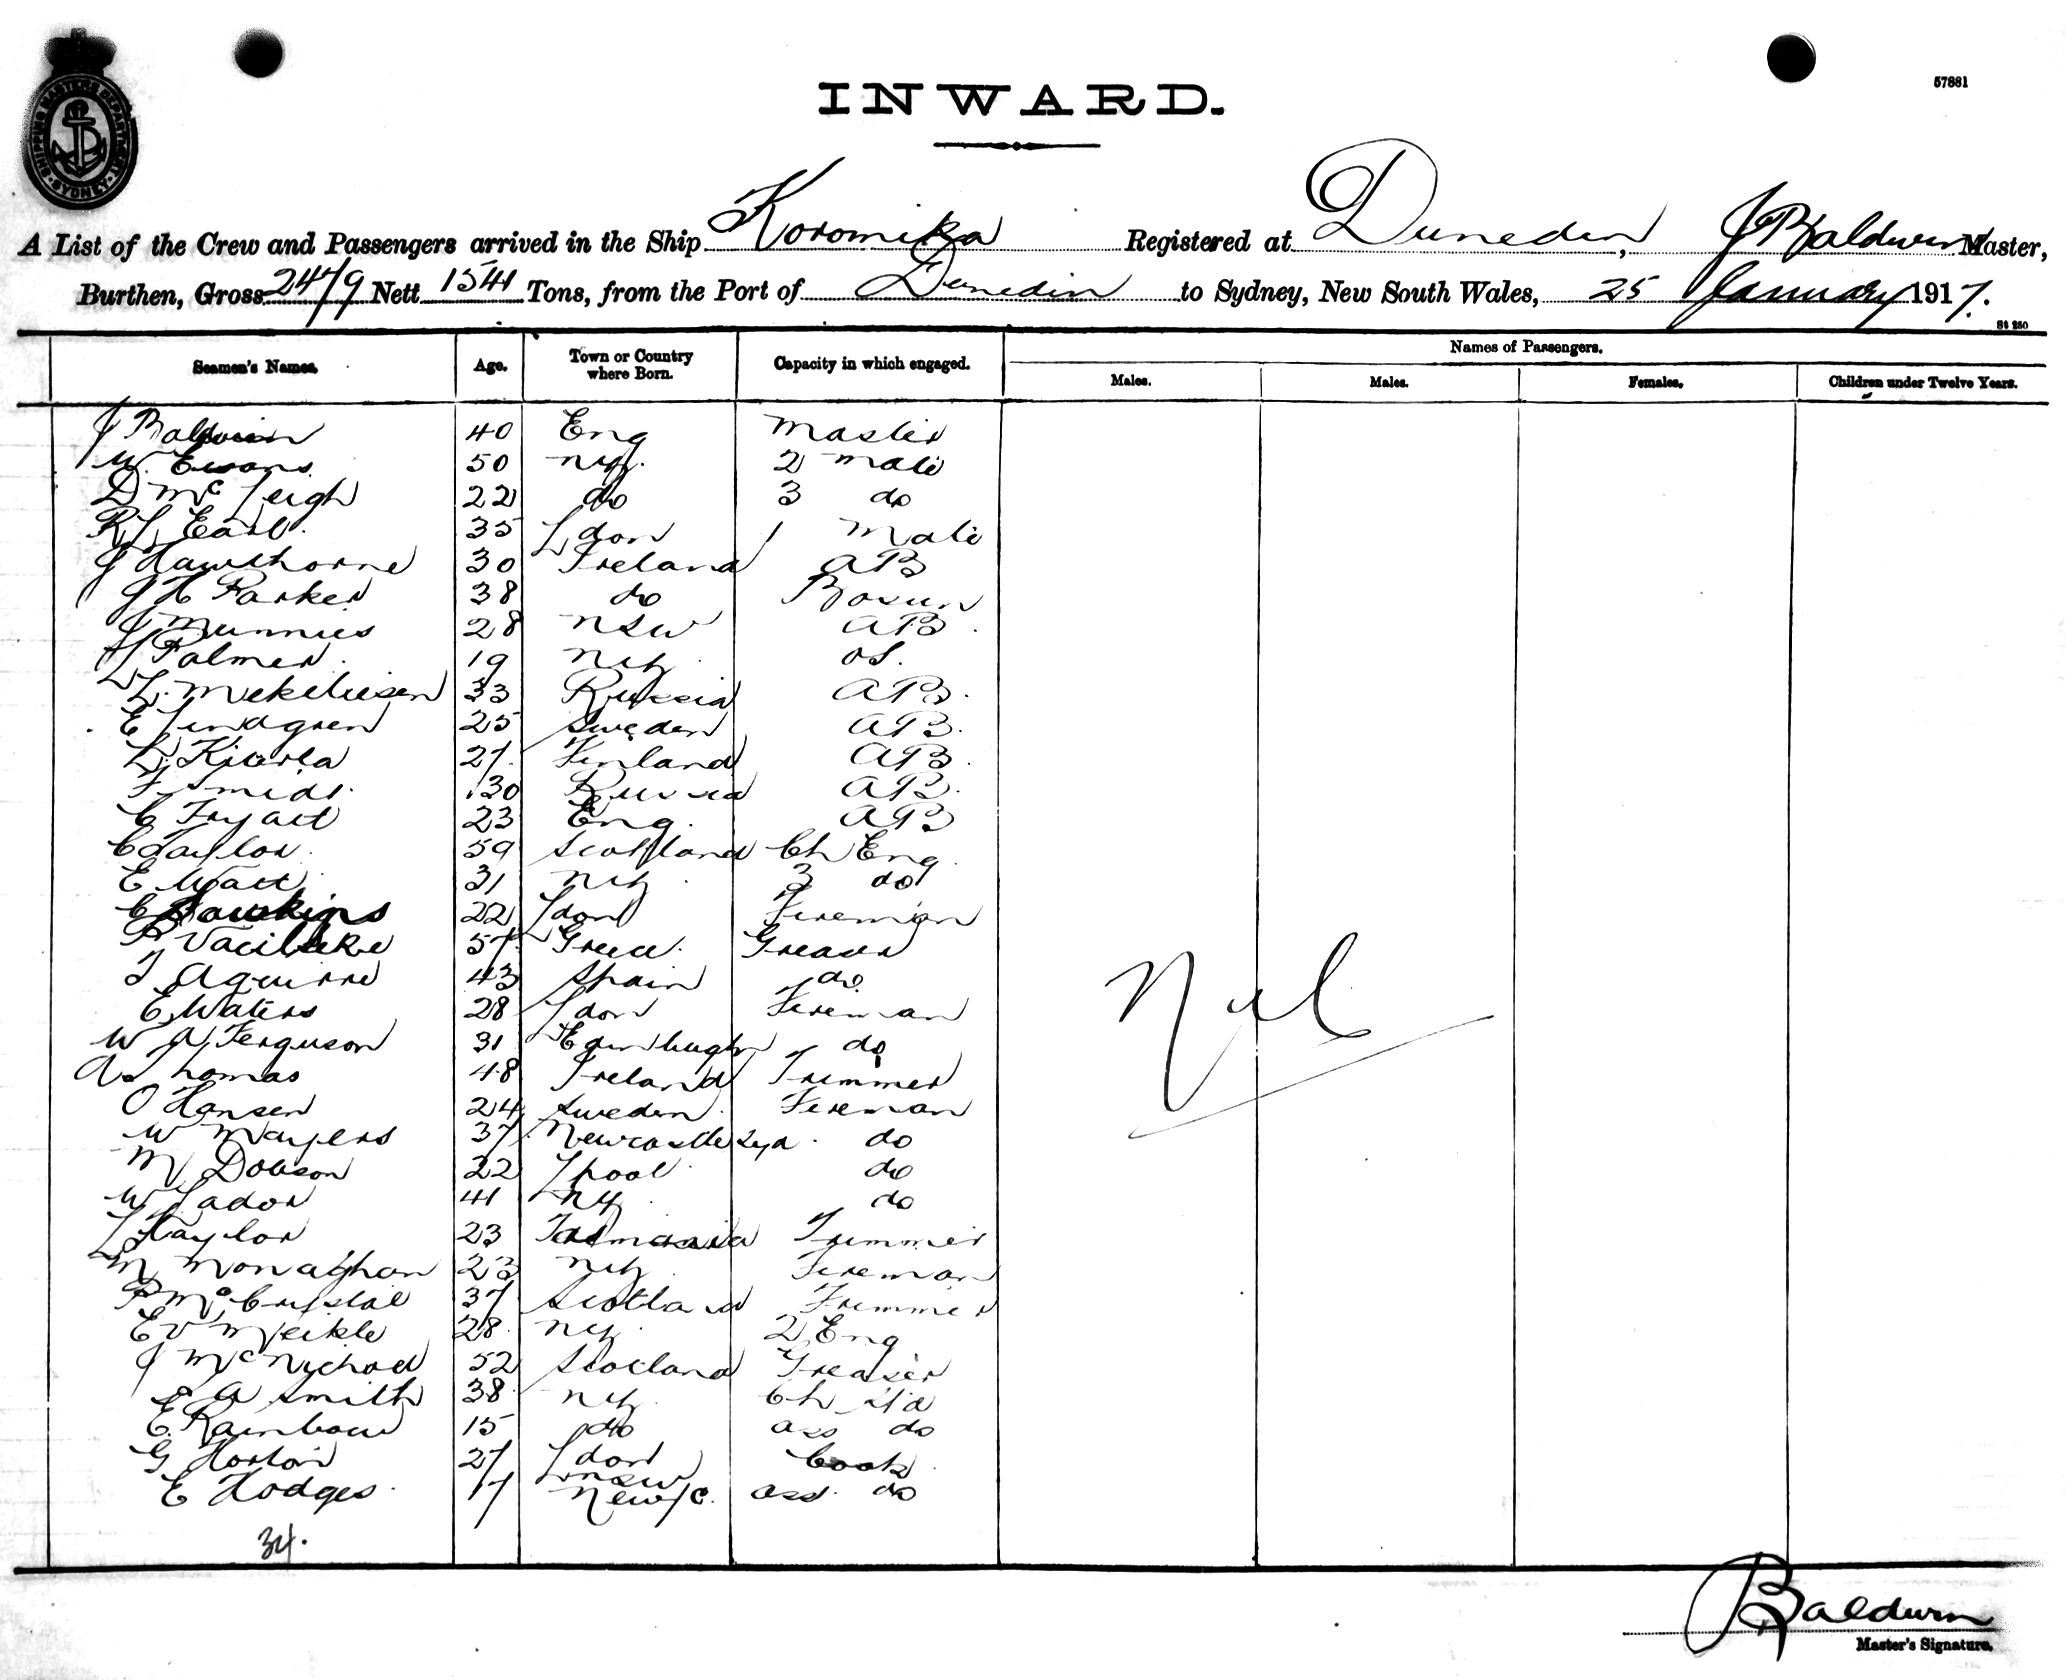 57881
INWARD.
SHIPPING MASTERS DEPARTMENT SYDNEY
A List of the Crew and Passengers arrived in the Ship Koromika Registered at Dunedin, J Baldwin Master,
Burthen, Gross 2479 Nett 1541 Tons, from the Port of Dunedin to Sydney, New South Wales, 25 January 1917.
St 250
Seamen's Names. Age. Town or Country where Born. Capacity in which engaged. Names of Passengers.
Males. Males. Females. Children under Twelve Years.
J Baldwin 40 Eng Master
W. Evans 50 NZ. 2 mate
D McLeigh 22 do 3 do
R L Earl. 35 Ldon 1 Mate
J Hawthorne 30 Ireland AB
J H Parker 38 do Bosun
J Munnies 28 NSW AB.
L Palmer. 19 NZ. OS.
L. 33 Russia AB.
E Lindgren 25 Sweden AB.
27. Finland AB.
F Smidt. 30 Russia AB.
C Fryatt 23 Eng. AB
C Taylor. 59 Scotland Ch Eng.
E Watt. 31 NZ. 3 do
C Hawkins 22 Ldon Fireman
P 57 Greece. Greaser
J Aguirre 43 Spain do.
E Waters 28 Ldon Fireman
W A Ferguson 31 Edinburgh do
A Thomas 48 Ireland Trimmer
O Hansen 24 Sweden. Fireman
W Mayers 37 Newcastle do
M Dobson 22 Lpool. do
W Lador 41 NZ. do
L Taylor 23 Tasmania Trimmer
M Monaghan 23 NZ. Fireman
P McCrystal 37 Scotland Trimmer
E V Meikle 28. NZ. 2 Eng
J McNichol 52 Scotland Greaser
E A Smith 38. NZ. Ch Std
E. Rainbow 15 do ass do
G Horton 27 Ldon Cook.
E Hodges. 17 NSW New/c. ass. do
Nil
34.
Baldwin
Master's Signature.